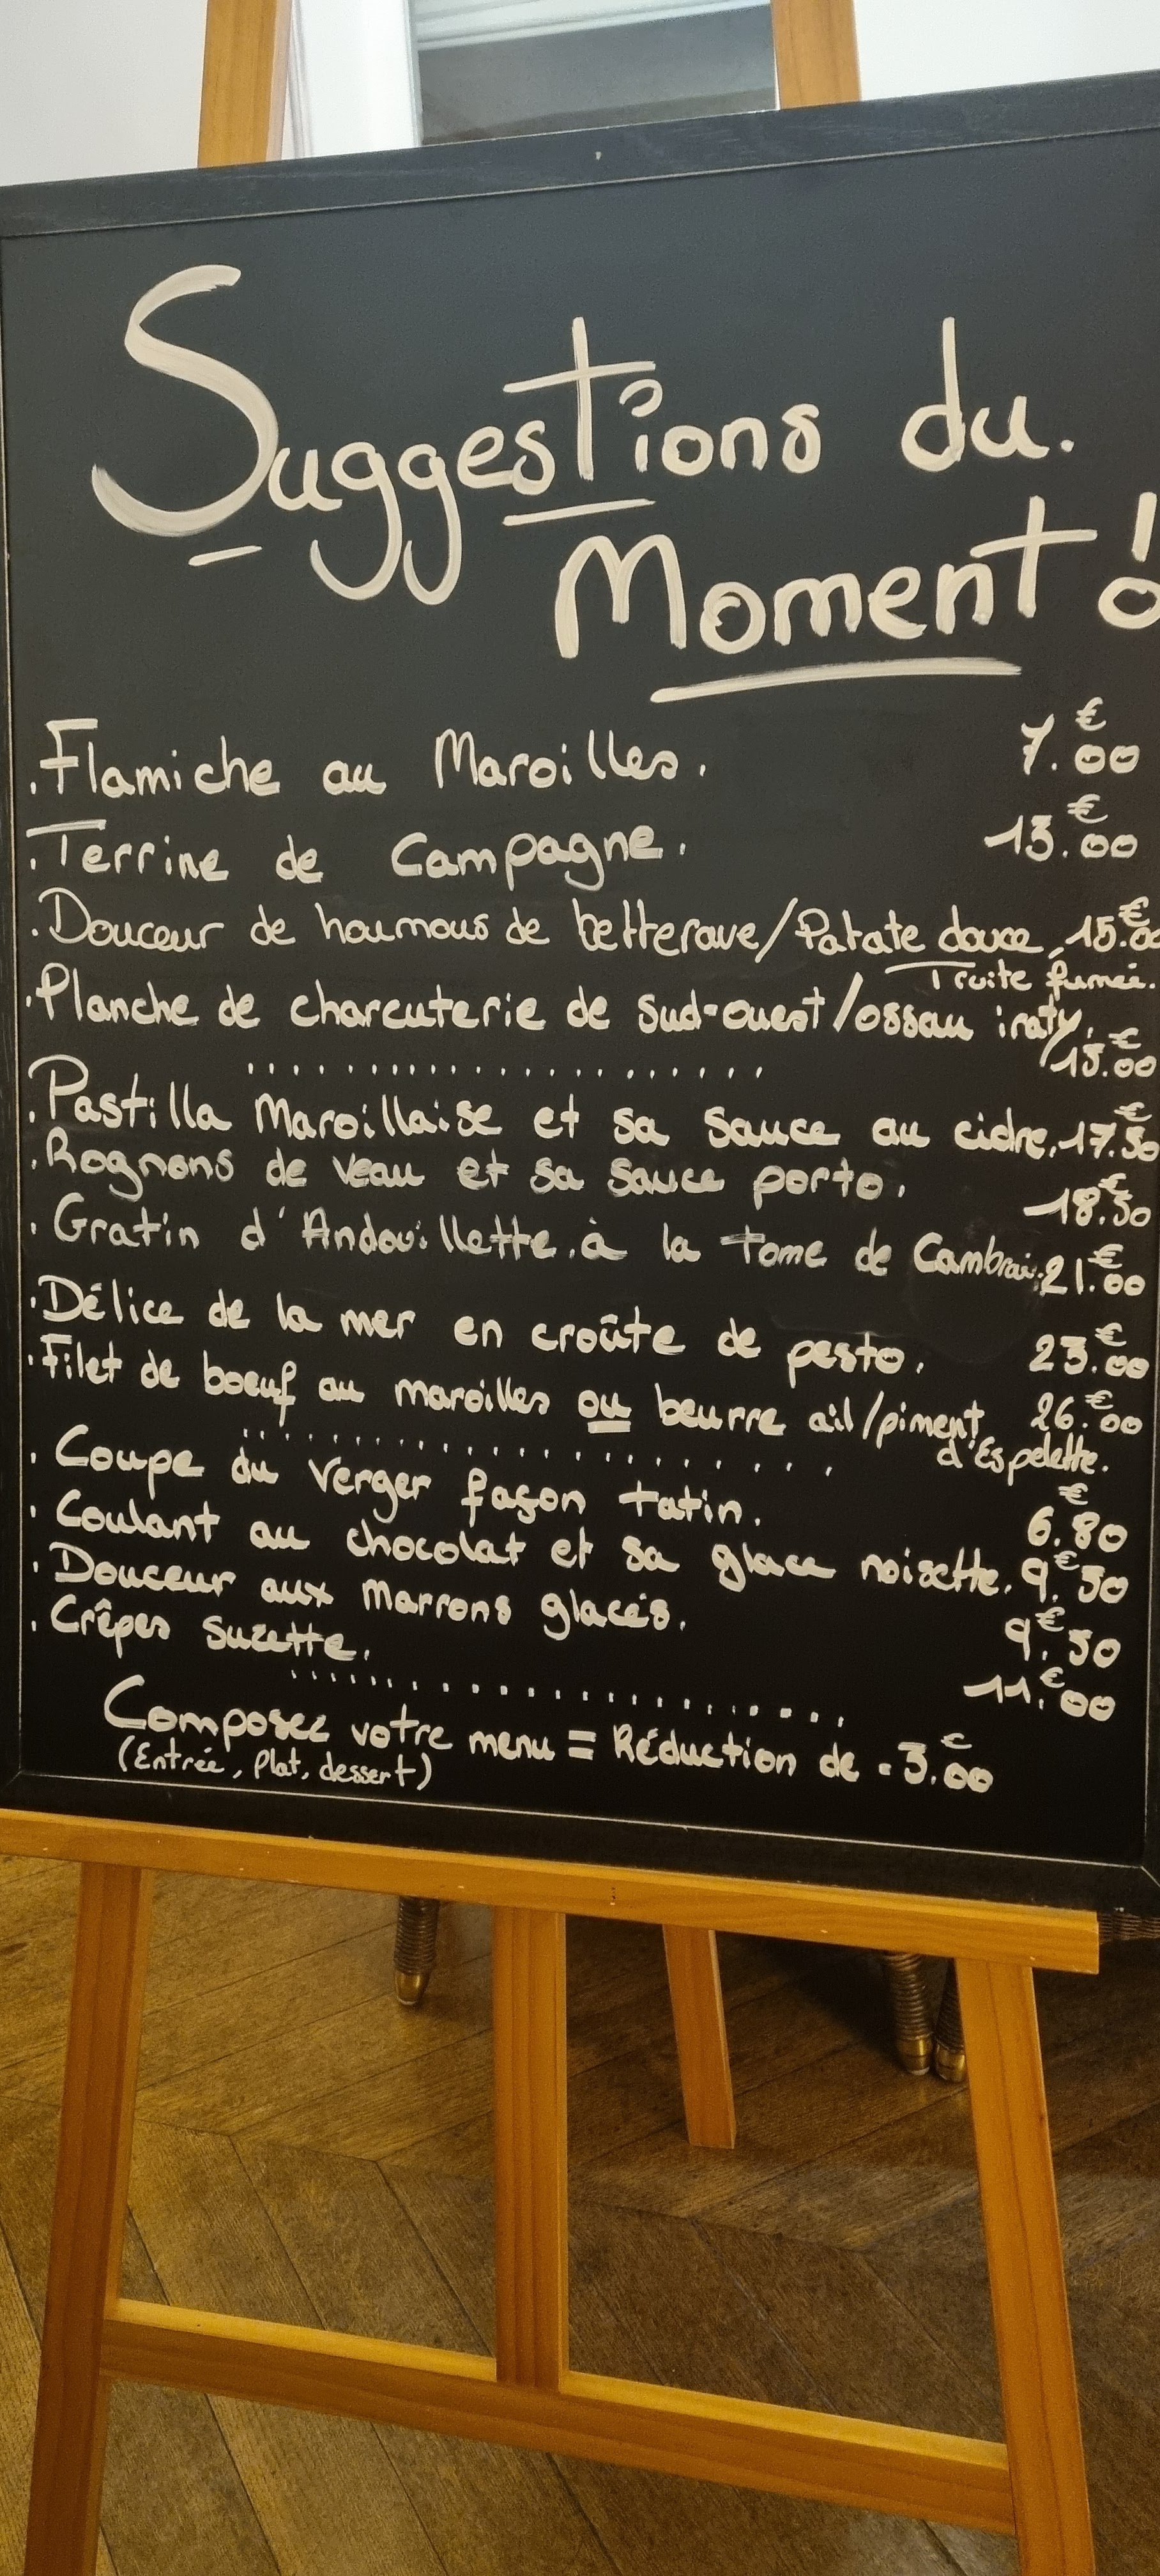 Suggestions du.
Moment !
.Flamiche au Maroilles. 7.€00
.Terrine de Campagne. 13.€00
.Douceur de houmous de betterave/Patate douce, 15.€00
Truite fumée.
.Planche de charcuterie de sud-ouest/ossau iraty.
15.€00
.Pastilla Maroillaise et sa sauce au cidre. 17.€50
.Rognons de veau et sa sauce porto. 18.€50
.Gratin d'Andouillette à la tome de Cambrai. 21.€00
.Délice de la mer en croûte de pesto. 23.€00
.Filet de boeuf au maroilles ou beurre ail/piment 26.€00
d'Espelette.
.Coupe du verger façon tatin. 6.€80
.Coulant au chocolat et sa glace noisette. 9.€50
.Douceur aux marrons glacés. 9.€50
.Crêpes suzette. 11.€00
Composez votre menu = Réduction de -3.€00
(Entrée, Plat, dessert)